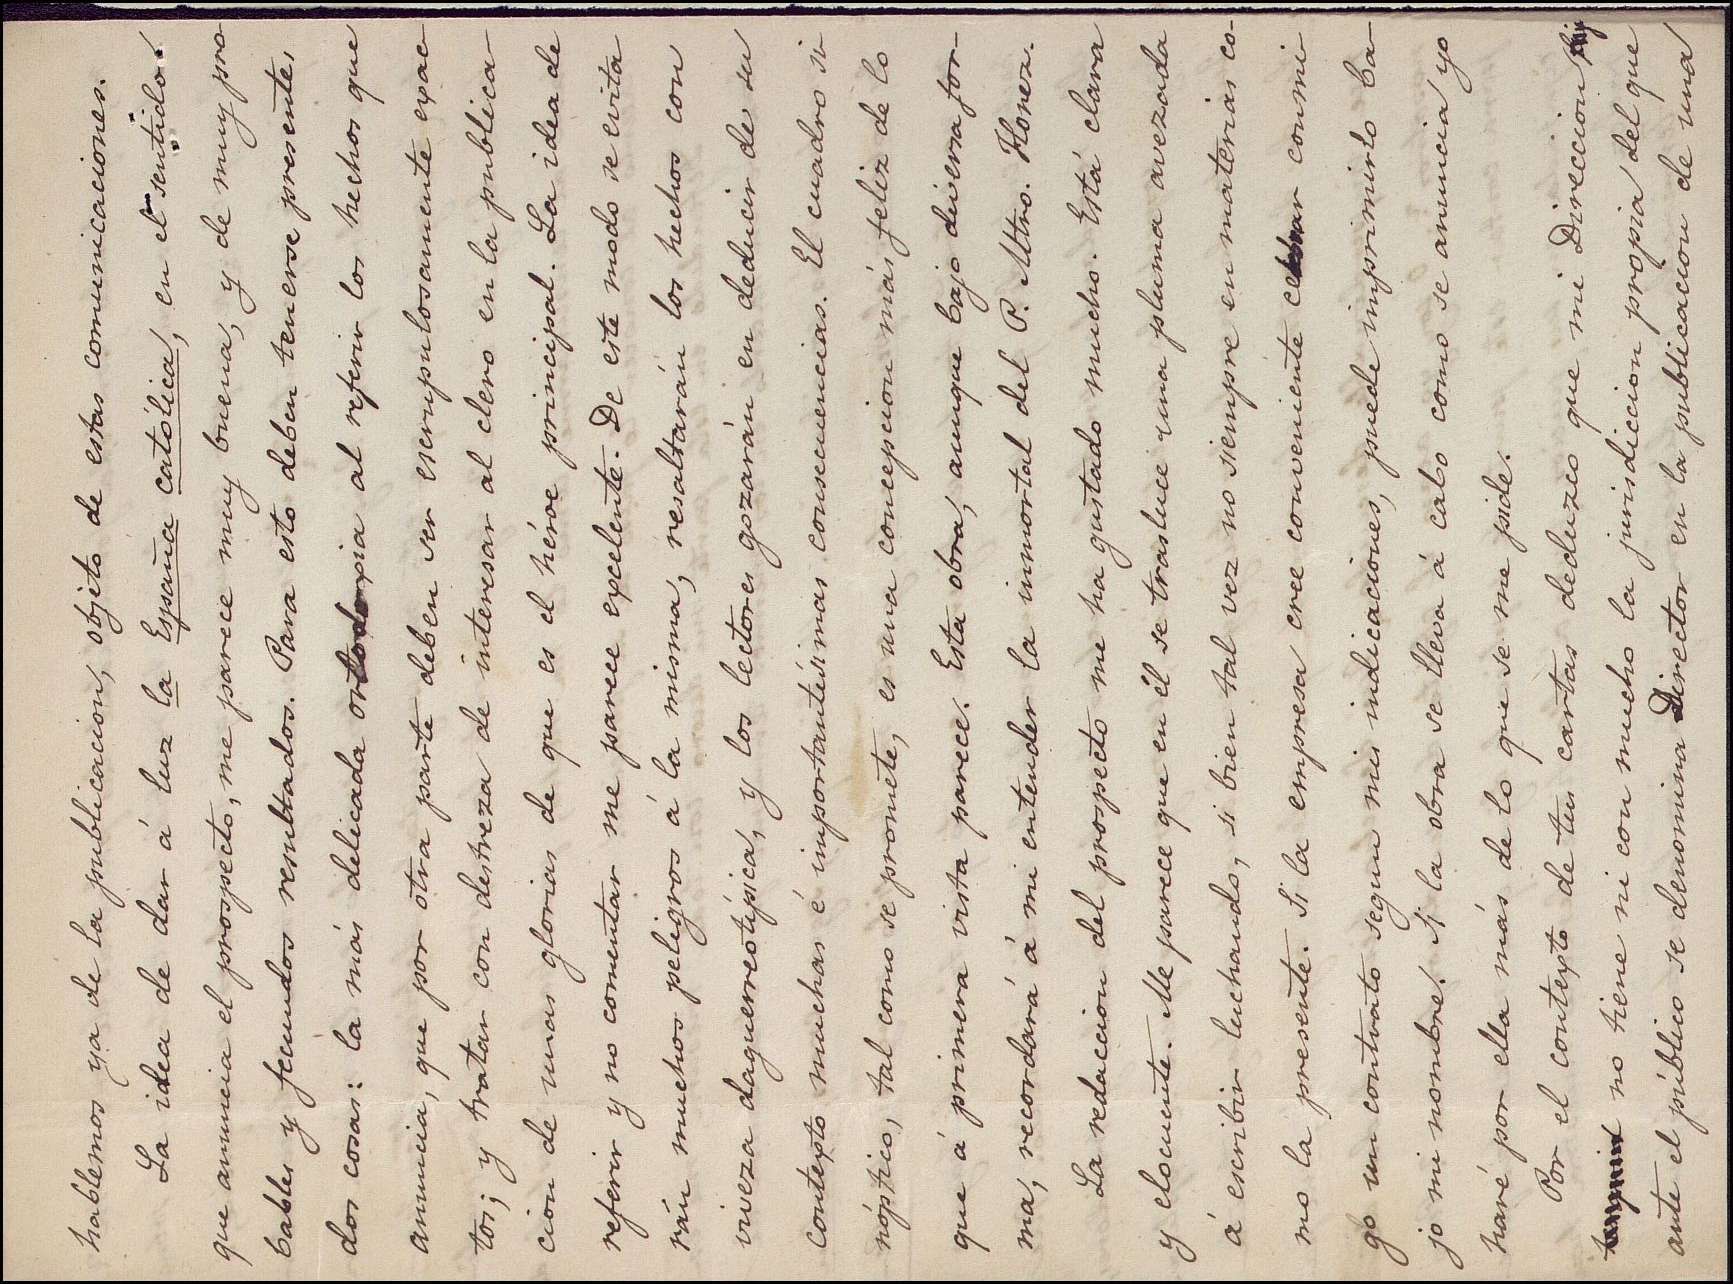 hablemos ya de la publicacion, objeto de estas comunicaciones.
La idea de dar á luz la España católica, en el sentido
que anuncia el prospecto, me parece muy buena, y de muy pro-
bables y fecundos resultados. Para esto deben tenerse presentes
dos cosas: la más delicada ortodoxia al referir los hechos que
anuncia, que por otra parte deben ser escrupulosamente exac-
tos; y tratar con destreza de interesar al clero en la publica-
cion de unas glorias de que es el héroe principal. La idea de
referir y no comentar me parece excelente. De este modo se evita
rán muchos peligros á la misma, resaltarán los hechos con
viveza daguerreotípica, y los lectores gozarán en deducir de su
contexto muchas é importantísimas consecuencias. El cuadro si
nóptico, tal como se promete, es una concepcion más feliz de lo
que á primera vista parece. Esta obra, aunque bajo diversa for-
ma, recordará á mi entender la inmortal del P. Mtro. Florez.
La redaccion del prospecto me ha gustado mucho. Está clara
y elocuente. Me parece que en él se trasluce una pluma avezada
á escribir luchando, si bien tal vez no siempre en materias co-
mo la presente. Si la empresa cree conveniente celebrar conmi-
go un contrato segun mis indicaciones, puede imprimirlo ba-
jo mi nombre. Si la obra se lleva á cabo como se anuncia yo
haré por ella más de lo que se me pide.
Por el contexto de tus cartas deduzco que mi Direccion
no tiene ni con mucho la jurisdiccion propia del que
ante el público se denomina Director en la publicacion de una